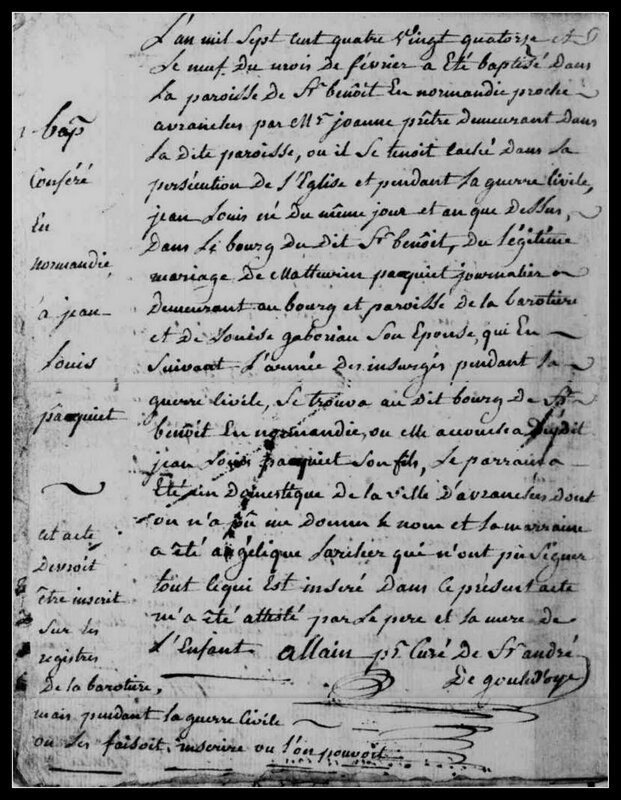 L'an mil sept cent quatre vingt quatorze et
Le neuf du mois de février a été baptisé dans
La paroisse de St benoît En normandie proche
avranches par Mr joanne prêtre demeurant dans
La dite paroisse, ou il se tenoit caché dans la
persécution de L'Eglise et pendant la guerre civile,
jean Louis né du même jour et an que dessus,
dans le bourg du dit St benoît, du légitime
mariage de Mathurin pacquiet journalier
demeurant au bourg et paroisse de la barotiere
et de Louise gaboriau son Epouse, qui En
suivant L'armée des insurgés pendant la
guerre civile, se trouva au dit bourg de St
benoît En normandie, ou elle accoucha du dit
jean Louis pacquiet son fils, Le parrain a
Eté un domestique de la ville d'avranches dont
on n'a pû me donner le nom et la marraine
a été angélique qui n'ont pu signer
tout ce qui Est inseré dans ce présent acte
m'a été attesté par le pere et la mere de
L'Enfant allain ptr Curé de St andré
De gouledoye
bap
Conféré
En
normandie
a jean
Louis
pacquiet
cet acte
devroit
être inscrit
sur les
registres
De la baroture,
mais pendant la guerre civile
on les faisoit inscrire ou l'on pouvoit